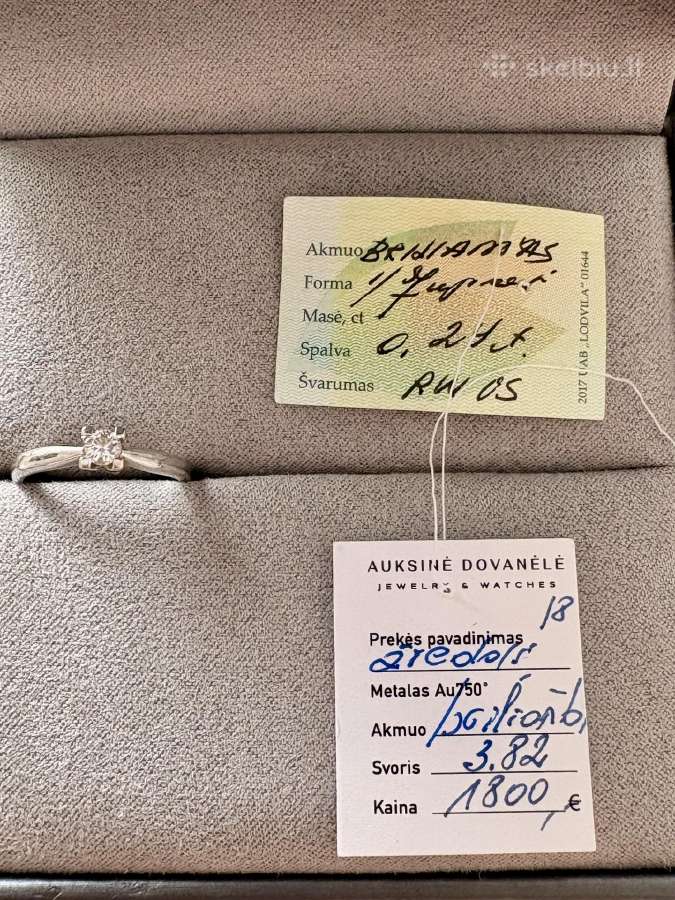 skelbiu.lt
Akmuo BRILIANTAS
Forma
Masė, ct
Spalva 0,21 ct.
Švarumas RW/VS
2017 UAB „LODVILA“ 01644
AUKSINĖ DOVANĖLĖ
JEWELRY & WATCHES
18
Prekės pavadinimas
žiedas
Metalas Au750°
Akmuo
Svoris 3.82
Kaina 1800 €